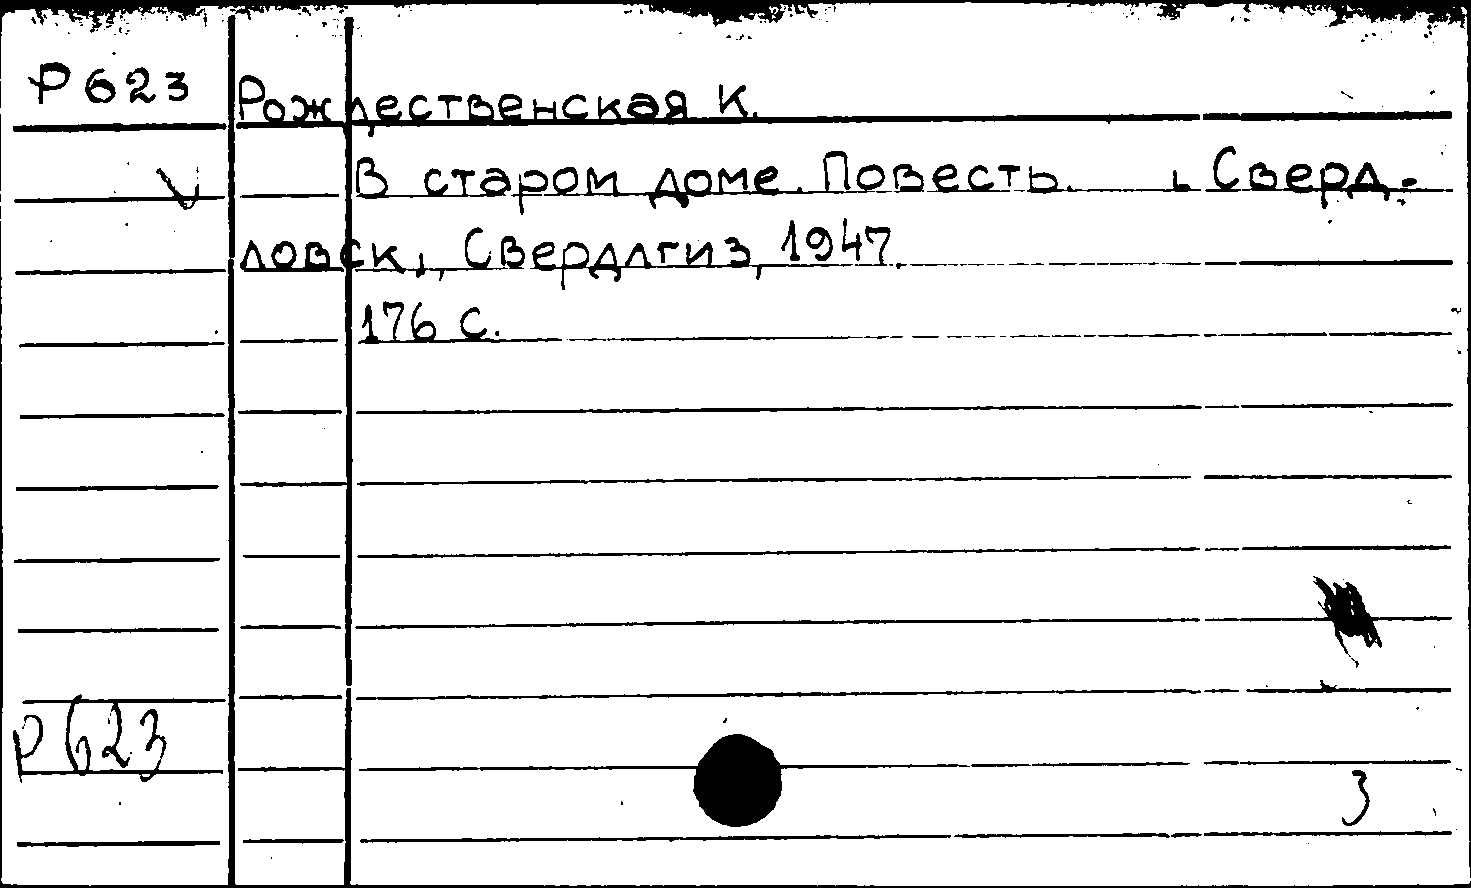 Р623
Рождественская К.
В старом доме. Повесть. [Сверд-
ловск], Свердлгиз, 1947.
176 с.
Р623
3